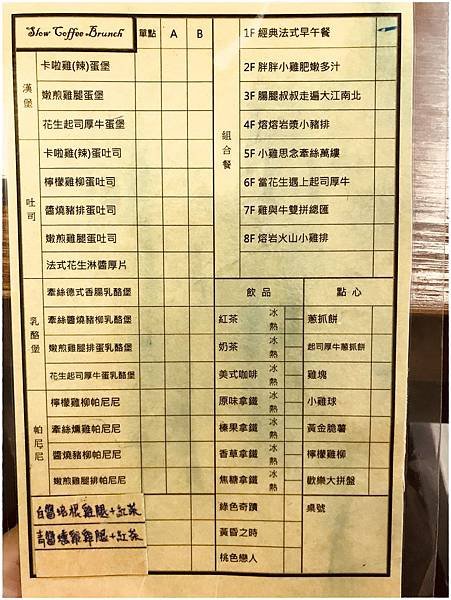 Slow Coffee Brunch 單點 A B
漢堡
卡啦雞(辣)蛋堡
嫩煎雞腿蛋堡
花生起司厚牛蛋堡
吐司
卡啦雞(辣)蛋吐司
檸檬雞柳蛋吐司
醬燒豬排蛋吐司
嫩煎雞腿蛋吐司
法式花生淋醬厚片
乳酪堡
牽絲德式香腸乳酪堡
牽絲醬燒豬柳乳酪堡
嫩煎雞腿排蛋乳酪堡
花生起司厚牛蛋乳酪堡
帕尼尼
檸檬雞柳帕尼尼
牽絲燻雞帕尼尼
醬燒豬柳帕尼尼
嫩煎雞腿排帕尼尼
白醬培根雞腿+紅茶
青醬燻雞雞腿+紅茶
組合餐
1F 經典法式早午餐
2F 胖胖小雞肥嫩多汁
3F 腸腿叔叔走遍大江南北
4F 熔熔岩漿小豬排
5F 小雞思念牽絲萬縷
6F 當花生遇上起司厚牛
7F 雞與牛雙拼總匯
8F 熔岩火山小雞排
飲品
紅茶 冰 熱
奶茶 冰 熱
美式咖啡 冰 熱
原味拿鐵 冰 熱
榛果拿鐵 冰 熱
香草拿鐵 冰 熱
焦糖拿鐵 冰 熱
綠色奇蹟
黃昏之時
桃色戀人
點心
蔥抓餅
起司厚牛蔥抓餅
雞塊
小雞球
黃金脆薯
檸檬雞柳
歡樂大拼盤
桌號